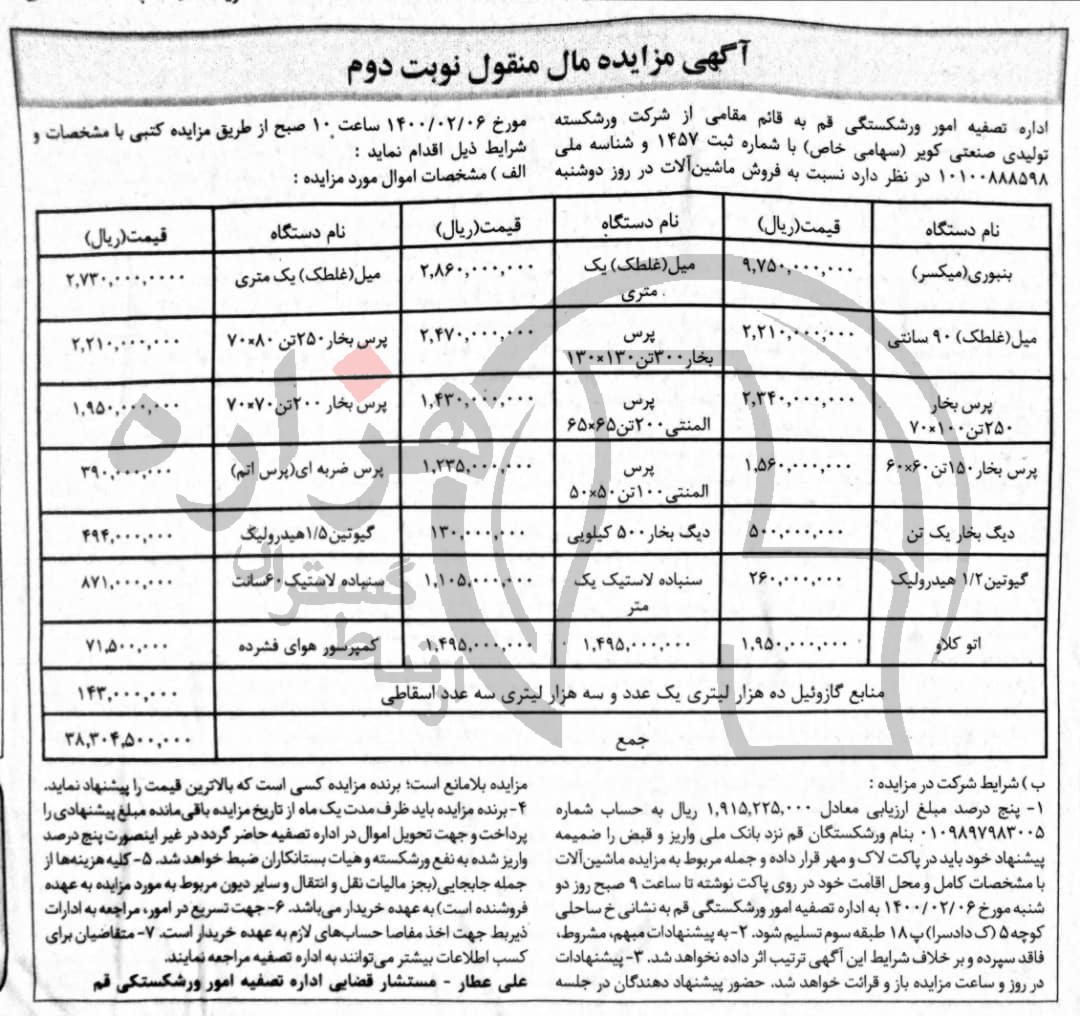 آگهی مزایده مال منقول نوبت دوم
اداره تصفیه امور ورشکستگی قم به قائم مقامی از شرکت ورشکسته
تولیدی صنعتی کویر (سهامی خاص) با شماره ثبت ۱۴۵۷ و شناسه ملی
۱۰۱۰۰۸۸۸۵۹۸ در نظر دارد نسبت به فروش ماشین‌آلات در روز دوشنبه
مورخ ۱۴۰۰/۰۲/۰۶ ساعت ۱۰ صبح از طریق مزایده کتبی با مشخصات و
شرایط ذیل اقدام نماید :
الف ) مشخصات اموال مورد مزایده :
نام دستگاه قیمت(ریال) نام دستگاه قیمت(ریال) نام دستگاه قیمت(ریال)
بنبوری(میکسر) ۹,۷۵۰,۰۰۰,۰۰۰ میل(غلطک) یک متری ۲,۸۶۰,۰۰۰,۰۰۰ میل(غلطک) یک متری ۲,۷۳۰,۰۰۰,۰۰۰۰
میل(غلطک) ۹۰ سانتی ۲,۲۱۰,۰۰۰,۰۰۰ پرس بخار۳۰۰تن۱۳۰×۱۳۰ ۲,۴۷۰,۰۰۰,۰۰۰ پرس بخار۲۵۰تن ۸۰×۷۰ ۲,۲۱۰,۰۰۰,۰۰۰
پرس بخار ۲۵۰تن۱۰۰×۷۰ ۲,۳۴۰,۰۰۰,۰۰۰ پرس المنتی۲۰۰تن۶۵×۶۵ ۱,۴۳۰,۰۰۰,۰۰۰ پرس بخار ۲۰۰تن۷۰×۷۰ ۱,۹۵۰,۰۰۰,۰۰۰
پرس بخار۱۵۰تن۶۰×۶۰ ۱,۵۶۰,۰۰۰,۰۰۰ پرس المنتی۱۰۰تن۵۰×۵۰ ۱,۲۳۵,۰۰۰,۰۰۰ پرس ضربه ای(پرس اتم) ۳۹۰,۰۰۰,۰۰۰
دیگ بخار یک تن ۵۰۰,۰۰۰,۰۰۰ دیگ بخار۵۰۰ کیلویی ۱۳۰,۰۰۰,۰۰۰ گیوتین۱/۵هیدرولیگ ۴۹۴,۰۰۰,۰۰۰
گیوتین۱/۲ هیدرولیک ۲۶۰,۰۰۰,۰۰۰ سنباده لاستیک یک متر ۱,۱۰۵,۰۰۰,۰۰۰ سنباده لاستیک۶۰سانت ۸۷۱,۰۰۰,۰۰۰
اتو کلاو ۱,۹۵۰,۰۰۰,۰۰۰ ۱,۴۹۵,۰۰۰,۰۰۰ ۱,۴۹۵,۰۰۰,۰۰۰ کمپرسور هوای فشرده ۷۱,۵۰۰,۰۰۰
منابع گازوئیل ده هزار لیتری یک عدد و سه هزار لیتری سه عدد اسقاطی ۱۴۳,۰۰۰,۰۰۰
جمع ۳۸,۳۰۴,۵۰۰,۰۰۰
ب ) شرایط شرکت در مزایده :
۱- پنج درصد مبلغ ارزیابی معادل ۱,۹۱۵,۲۲۵,۰۰۰ ریال به حساب شماره
۰۱۰۹۸۹۷۹۸۳۰۰۵ بنام ورشکستگان قم نزد بانک ملی واریز و قبض را ضمیمه
پیشنهاد خود باید در پاکت لاک و مهر قرار داده و جمله مربوط به مزایده ماشین‌آلات
با مشخصات کامل و محل اقامت خود در روی پاکت نوشته تا ساعت ۹ صبح روز دو
شنبه مورخ ۱۴۰۰/۰۲/۰۶ به اداره تصفیه امور ورشکستگی قم به نشانی خ ساحلی
کوچه۵ (ک دادسرا) پ۱۸ طبقه سوم تسلیم شود. ۲- به پیشنهادات مبهم، مشروط،
فاقد سپرده و بر خلاف شرایط این آگهی ترتیب اثر داده نخواهد شد. ۳- پیشنهادات
در روز و ساعت مزایده باز و قرائت خواهد شد. حضور پیشنهاد دهندگان در جلسه
مزایده بلامانع است؛ برنده مزایده کسی است که بالاترین قیمت را پیشنهاد نماید.
۴- برنده مزایده باید ظرف مدت یک ماه از تاریخ مزایده باقی‌مانده مبلغ پیشنهادی را
پرداخت و جهت تحویل اموال در اداره تصفیه حاضر گردد در غیر اینصورت پنج درصد
واریز شده به نفع ورشکسته و هیات بستانکاران ضبط خواهد شد. ۵- کلیه هزینه‌ها از
جمله جابجایی(بجز مالیات نقل و انتقال و سایر دیون مربوط به مورد مزایده به عهده
فروشنده است) به عهده خریدار می‌باشد. ۶- جهت تسریع در امور، مراجعه به ادارات
ذیربط جهت اخذ مفاصا حساب‌های لازم به عهده خریدار است. ۷- متقاضیان برای
کسب اطلاعات بیشتر می‌توانند به اداره تصفیه مراجعه نمایند.
علی عطار - مستشار قضایی اداره تصفیه امور ورشکستکی قم
هزاره
گستران
ارتباط